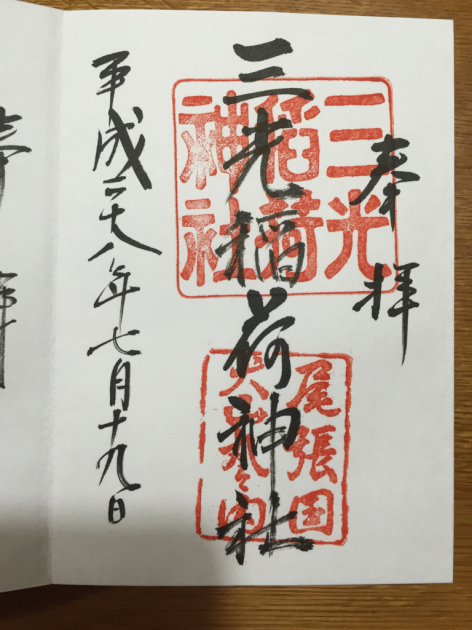 奉拝
三光稲荷神社
平成二十八年七月十九日
三光
稲荷
神社
尾張国